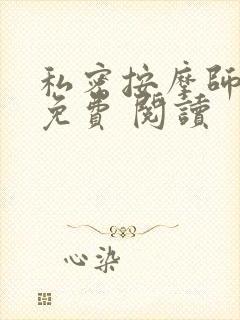 私密按摩師
免費 閱讀
心染